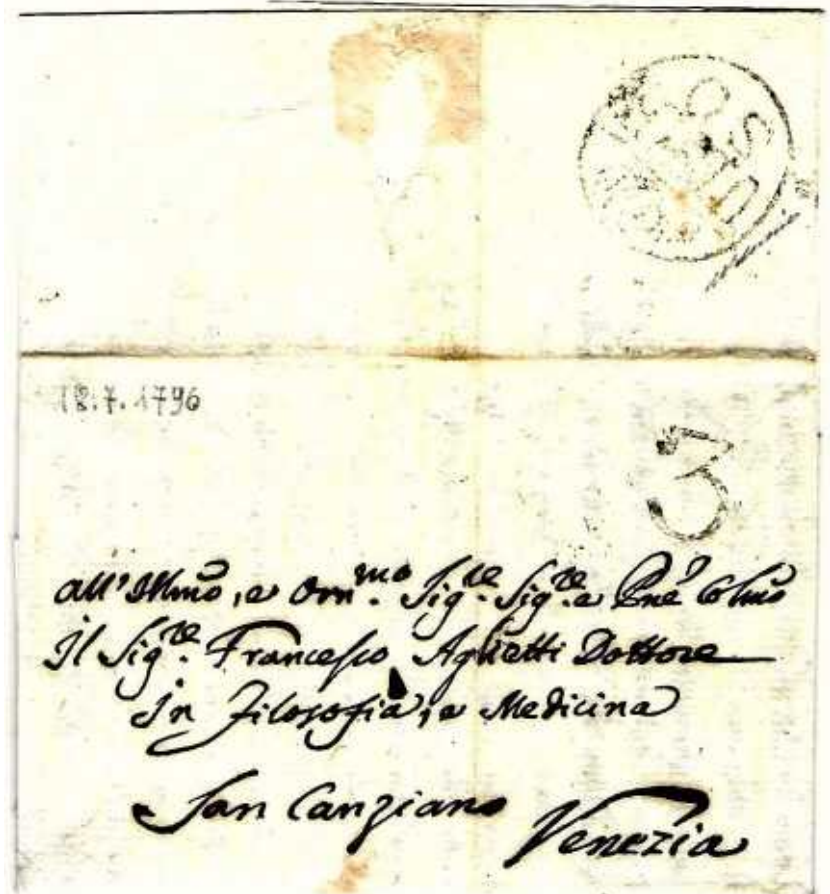 18.7.1796
3
all' Illmo, e Orn.mo Sig.re Sig.re e Pne Colmo
Il Sig.re Francesco Aglietti Dottore
In Filosofia, e Medicina
San Canziano
Venezia